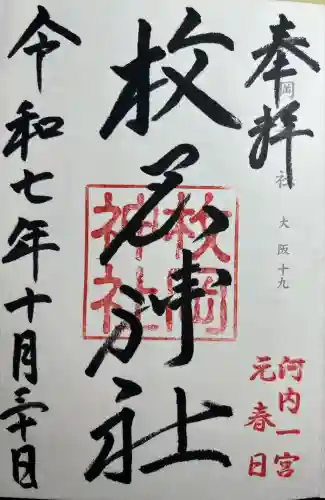 奉拝
岡 社 大阪十九
河内一宮
元春日
枚岡神社
枚岡
神社
令和七年十月三十日